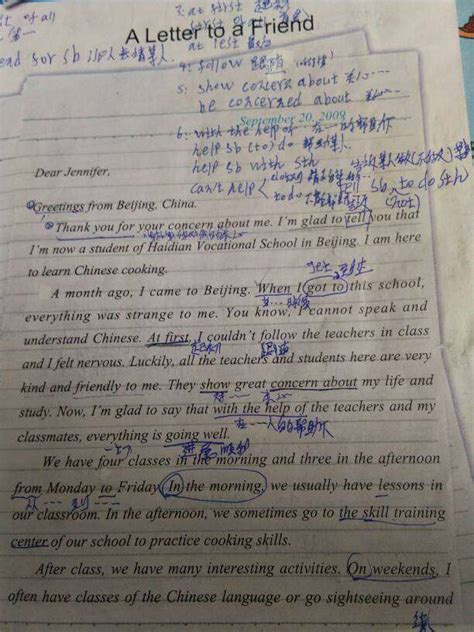 of all
3: at first 起初
第一
A Letter to a Friend
at last 最后
4: follow 跟随
5: show concern about 关心…
be concerned about
September 20, 2009
6: with the help of 在…的帮助下
help sb (to) do
help sb with sth
can't help
tell sb to do sth
(not)
Dear Jennifer,
Greetings from Beijing, China.
Thank you for your concern about me. I'm glad to tell you that
I'm now a student of Haidian Vocational School in Beijing. I am here
to learn Chinese cooking.
get 到达
A month ago, I came to Beijing. When I got to this school,
everything was strange to me. You know, I cannot speak and
understand Chinese. At first, I couldn't follow the teachers in class
起初 跟随
and I felt nervous. Luckily, all the teachers and students here are very
kind and friendly to me. They show great concern about my life and
study. Now, I'm glad to say that with the help of the teachers and my
在…人的帮助下
classmates, everything is going well.
进展顺利
We have four classes in the morning and three in the afternoon
from Monday to Friday. In the morning, we usually have lessons in
从 到
our classroom. In the afternoon, we sometimes go to the skill training
center of our school to practice cooking skills.
After class, we have many interesting activities. On weekends, I
often have classes of the Chinese language or go sightseeing around